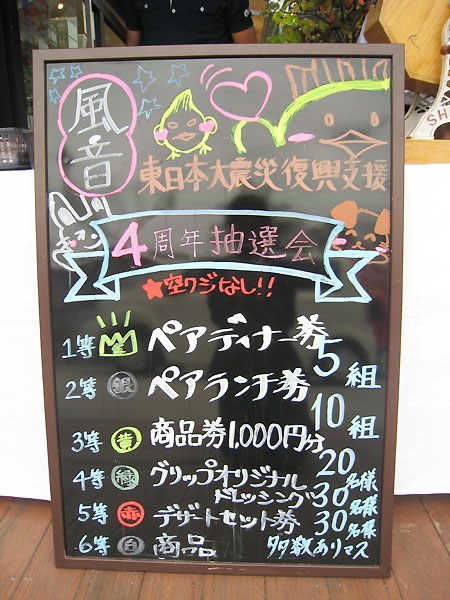 風音
東日本大震災復興支援
4周年抽選会
★空クジなし!!
1等 金 ペアディナー券 5組
2等 銀 ペアランチ券 10組
3等 黄 商品券1,000円分 20名様
4等 緑 グリップオリジナルドレッシング 30名様
5等 赤 デザートセット券 30名様
6等 白 商品 多数ありマス
SH